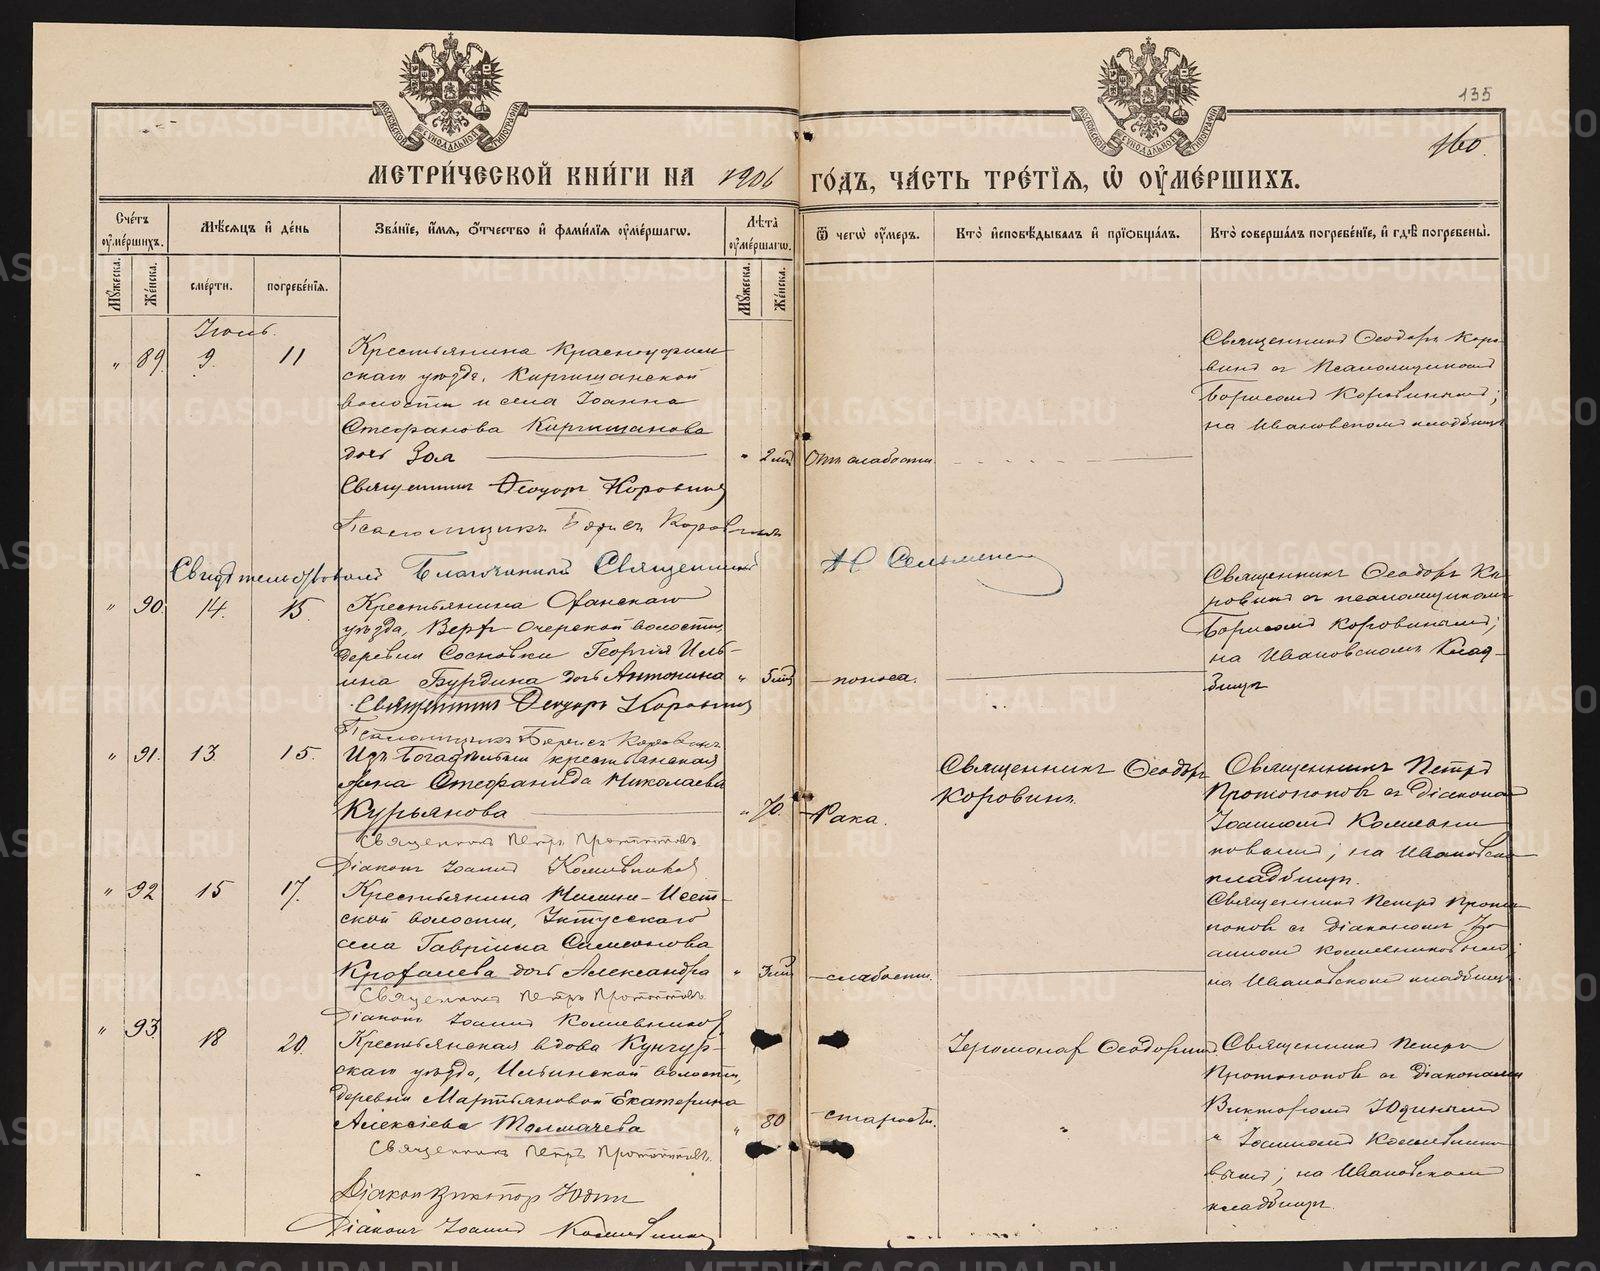 135
160.
МОСКОВСКОЙ СѴНОДАЛЬНОЙ ТИПОГРАФІИ
МОСКОВСКОЙ СѴНОДАЛЬНОЙ ТИПОГРАФІИ
МЕТРИ́ЧЕСКОЙ КНИ́ГИ НА 1906 ГО́ДЪ, ЧА́СТЬ ТРЕ́ТІѦ, Ѡ҆ ОУ҆МЕ́РШИХЪ.
Сче́тъ оу҆ме́ршихъ.
Мѣ́сѧцъ и҆ де́нь
Зва́нїе, и҆́мѧ, ѻ҆́тчество и҆ фами́лїѧ оу҆ме́ршагѡ.
Лѣ́та оу҆ме́ршагѡ.
Ѿ чегѡ̀ оу҆́меръ.
Кто̀ и҆сповѣ́дывалъ и҆ прїѡбща́лъ.
Кто̀ соверша́лъ погребе́нїе, и҆ гдѣ̀ погребены̀.
Мꙋ́жеска.
Же́нска.
сме́рти.
погребе́нїѧ.
Мꙋ́жеска.
Же́нска.
Іюль.
" 89. 9. 11
Крестьянина Красноуфим-
скаго уѣзда, Киргишанской
волости и села Іоанна
Стефанова Киргишанова
дочь Зоя " 2 мѣс. Отъ слабости.
Священникъ Ѳеодоръ Коро-
винъ съ Псаломщикомъ
Борисомъ Коровинымъ;
на Ивановскомъ кладбищѣ
Священникъ Ѳеодоръ Коровинъ
Псаломщикъ Борисъ Коровинъ
Свидѣтельствовалъ Благочинный Священникъ
" 90. 14. 15.
Крестьянина Оханскаго
уѣзда, Верхъ-Очерской волости,
деревни Сосновки Георгія Иль-
ина Бурдина дочь Антонина " 5 мѣс. — поноса.
Священникъ Ѳеодоръ Ко-
ровинъ съ псаломщикомъ
Борисомъ Коровинымъ;
на Ивановскомъ клад-
бищѣ
Священникъ Ѳеодоръ Коровинъ
Псаломщикъ Борисъ Коровинъ
" 91. 13. 15.
Изъ Богадѣльни крестьянская
Стефанида Николаева
Курьянова " 70. — Рака.
Священникъ Ѳеодоръ
Коровинъ.
Священникъ Петръ
Протопоповъ съ Діакономъ
Іоанномъ Кожевни-
ковымъ; на Ивановскомъ
кладбищѣ.
Священникъ Петръ Протопоповъ
Діаконъ Іоаннъ Кожевниковъ
" 92 15 17.
Крестьянина Нижне-Исет-
ской волости, Уктусскаго
села Гавріила Симеонова
Крохалева дочь Александра " 3 мѣс. — слабости.
Священникъ Петръ Прото-
поповъ съ діакономъ Іо-
анномъ Кожевниковымъ;
на Ивановскомъ кладбищѣ.
Священникъ Петръ Протопоповъ
Діаконъ Іоаннъ Кожевниковъ
" 93. 18 20.
Крестьянская вдова Кунгур-
скаго уѣзда, Ильинской волости,
деревни Мартьяновой Екатерина
Алексіева Толмачева " 80 — старости.
Іеромонахъ
Священникъ Петръ
Протопоповъ съ діаконами
Викторомъ Юдинымъ
и Іоанномъ Кожевнико-
вымъ; на Ивановскомъ
кладбищѣ.
Священникъ Петръ Протопоповъ.
Діаконъ Викторъ Юдинъ
Діаконъ Іоаннъ Кожевниковъ
METRIKI.GASO-URAL.RU